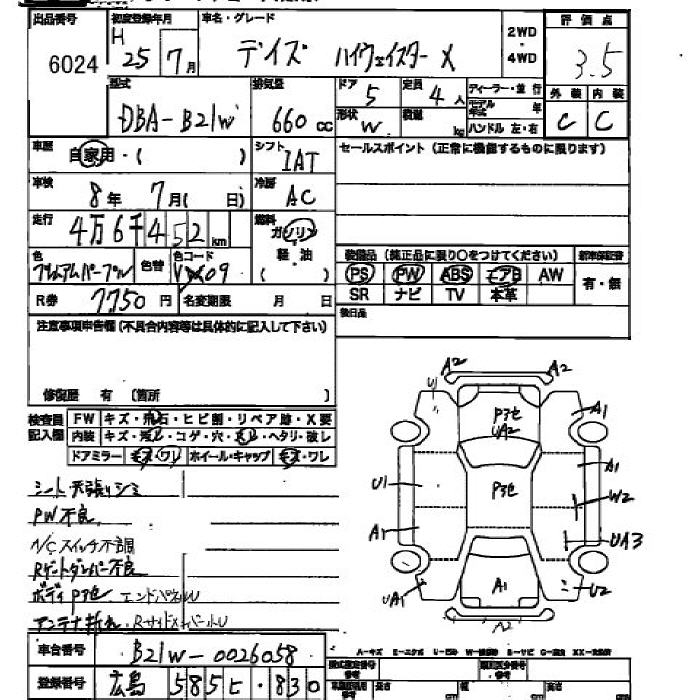 出品番号 初度登録年月 車名・グレード 2WD ・ 4WD 評価点
6024 H 25 7月 デイズ ハイウェイスター X 3.5
型式 排気量 ドア 定員 ディーラー・並行 外装 内装
DBA-B21W 660cc 5 4人 モデル年式 年 C C
形状 W 積載 kg ハンドル 左・右
車歴 自家用・( ) シフト IAT セールスポイント (正常に機能するものに限ります)
車検 8年 7月( 日) 冷房 AC
走行 4万6千452km 燃料 ガソリン 軽・油 ( )
色 プレミアムパープル 色替 色コード 装備品 (純正品に限り○をつけてください) 新車保証書
PS PW ABS エアB AW 有・無
SR ナビ TV 本革
R券 7750円 名変期限 月 日 後日品
注意事項申告欄(不具合内容等は具体的に記入して下さい)
修復歴 有 〔箇所 〕
検査員記入欄 FW キズ・飛石・ヒビ割・リペア跡・X要
内装 キズ・汚れ・コゲ・穴・スレ・ヘタリ・破レ
ドアミラー キズ・ワレ ホイール・キャップ キズ・ワレ
シート天張りシミ
PW不良
A/Cスイッチ不調
Rゲートダンパー不良
ボディP3色 エンドパネルU
アンテナ折れ
車台番号 B21W-0026058
登録番号 広島 585 ヒ ・830
A2 A2
U A1
P3色
UA2
U1 P3色 A1
W2
A1 UA3
UA1 A1 U2
A2